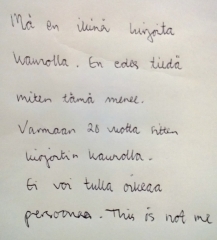 Mä en ikinä kirjoita
kaurolla. En edes tiedä
miten tämä menee.
Varmaan 20 vuotta sitten
kirjoitin kaurolla.
Ei voi tulla oikeaa
persoonaa. This is not me